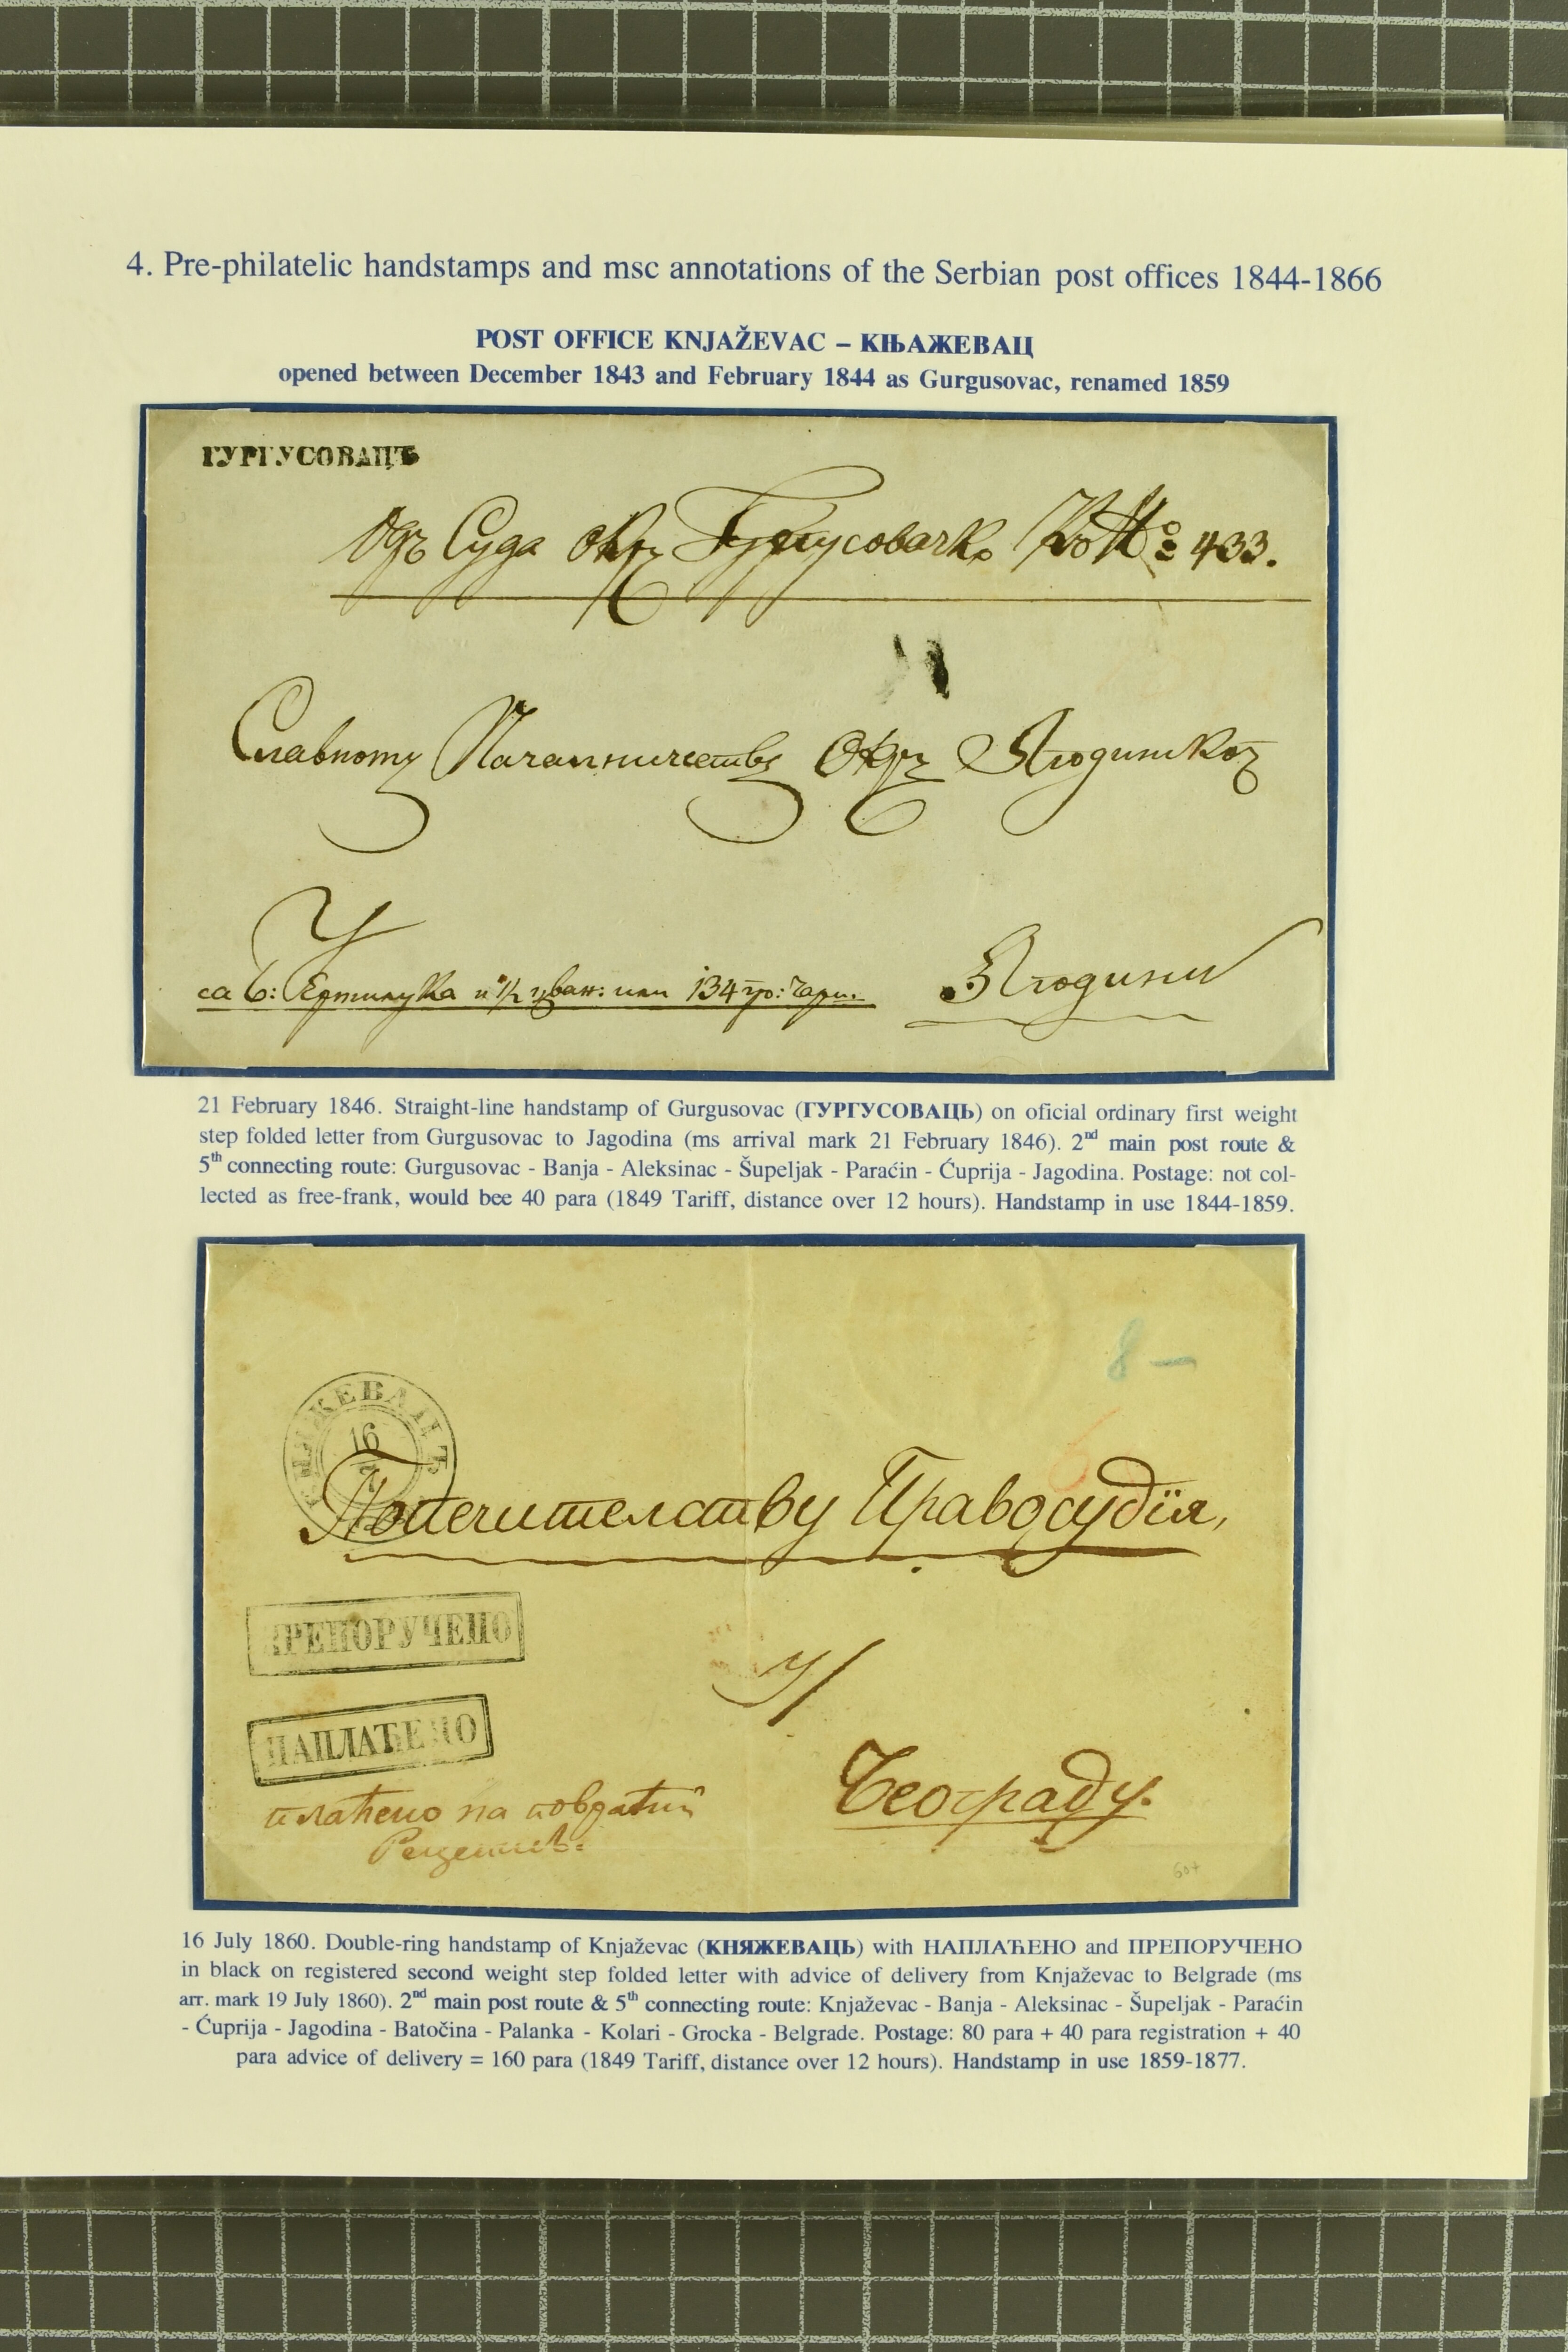 4. Pre-philatelic handstamps and msc annotations of the Serbian post offices 1844-1866
POST OFFICE KNJAŽEVAC – КЊАЖЕВАЦ
opened between December 1843 and February 1844 as Gurgusovac, renamed 1859
ГУРГУСОВАЦЪ
Одъ Суда Окр. № 433.
Славному Началничеству Окр. Ягодинског
У
са 6: и 1/2 цван: или 134 гр: чарш.
Ягодини
21 February 1846. Straight-line handstamp of Gurgusovac (ГУРГУСОВАЦЬ) on oficial ordinary first weight
step folded letter from Gurgusovac to Jagodina (ms arrival mark 21 February 1846). 2nd main post route &
5th connecting route: Gurgusovac - Banja - Aleksinac - Šupeljak - Paraćin - Ćuprija - Jagodina. Postage: not col-
lected as free-frank, would bee 40 para (1849 Tariff, distance over 12 hours). Handstamp in use 1844-1859.
8 –
КНЯЖЕВАЦЪ
16
7
Попечителству Правосудія,
ПРЕПОРУЧЕНО
У/
НАПЛАЋЕНО
Београду.
плаћено на повратни
Рецепис:
16 July 1860. Double-ring handstamp of Knjaževac (КНЯЖЕВАЦЬ) with НАПЛАЋЕНО and ПРЕПОРУЧЕНО
in black on registered second weight step folded letter with advice of delivery from Knjaževac to Belgrade (ms
arr. mark 19 July 1860). 2nd main post route & 5th connecting route: Knjaževac - Banja - Aleksinac - Šupeljak - Paraćin
- Ćuprija - Jagodina - Batočina - Palanka - Kolari - Grocka - Belgrade. Postage: 80 para + 40 para registration + 40
para advice of delivery = 160 para (1849 Tariff, distance over 12 hours). Handstamp in use 1859-1877.